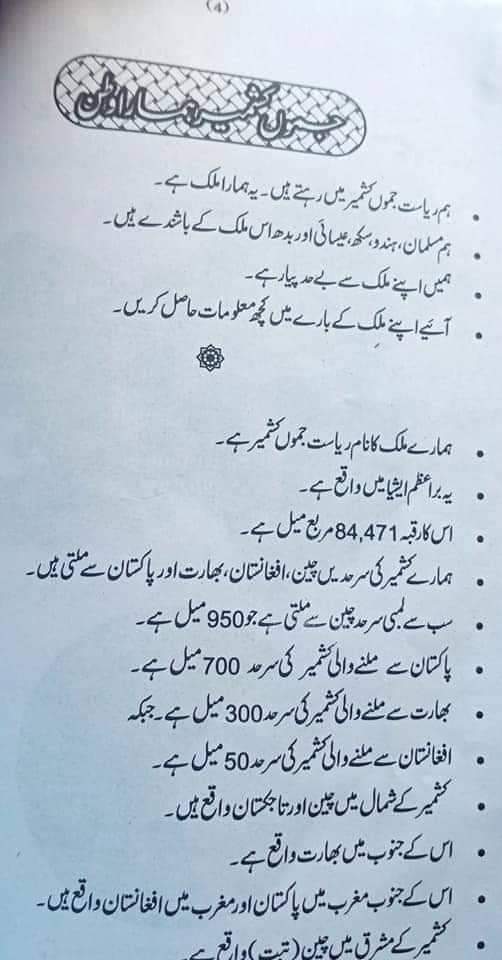 (4)
جموں کشمیر ہمارا وطن
ہم ریاست جموں کشمیر میں رہتے ہیں۔ یہ ہمارا ملک ہے۔
ہم مسلمان، ہندو، سکھ، عیسائی اور بدھ اس ملک کے باشندے ہیں۔
ہمیں اپنے ملک سے بے حد پیار ہے۔
آئیے اپنے ملک کے بارے میں کچھ معلومات حاصل کریں۔
ہمارے ملک کا نام ریاست جموں کشمیر ہے۔
یہ براعظم ایشیا میں واقع ہے۔
اس کا رقبہ 84,471 مربع میل ہے۔
ہمارے کشمیر کی سرحدیں چین، افغانستان، بھارت اور پاکستان سے ملتی ہیں۔
سب سے لمبی سرحد چین سے ملتی ہے جو 950 میل ہے۔
پاکستان سے ملنے والی کشمیر کی سرحد 700 میل ہے۔
بھارت سے ملنے والی کشمیر کی سرحد 300 میل ہے۔ جبکہ
افغانستان سے ملنے والی کشمیر کی سرحد 50 میل ہے۔
کشمیر کے شمال میں چین اور تاجکستان واقع ہیں۔
اس کے جنوب میں بھارت واقع ہے۔
اس کے جنوب مغرب میں پاکستان اور مغرب میں افغانستان واقع ہیں۔
کشمیر کے مشرق میں چین (تبت) واقع ہے۔